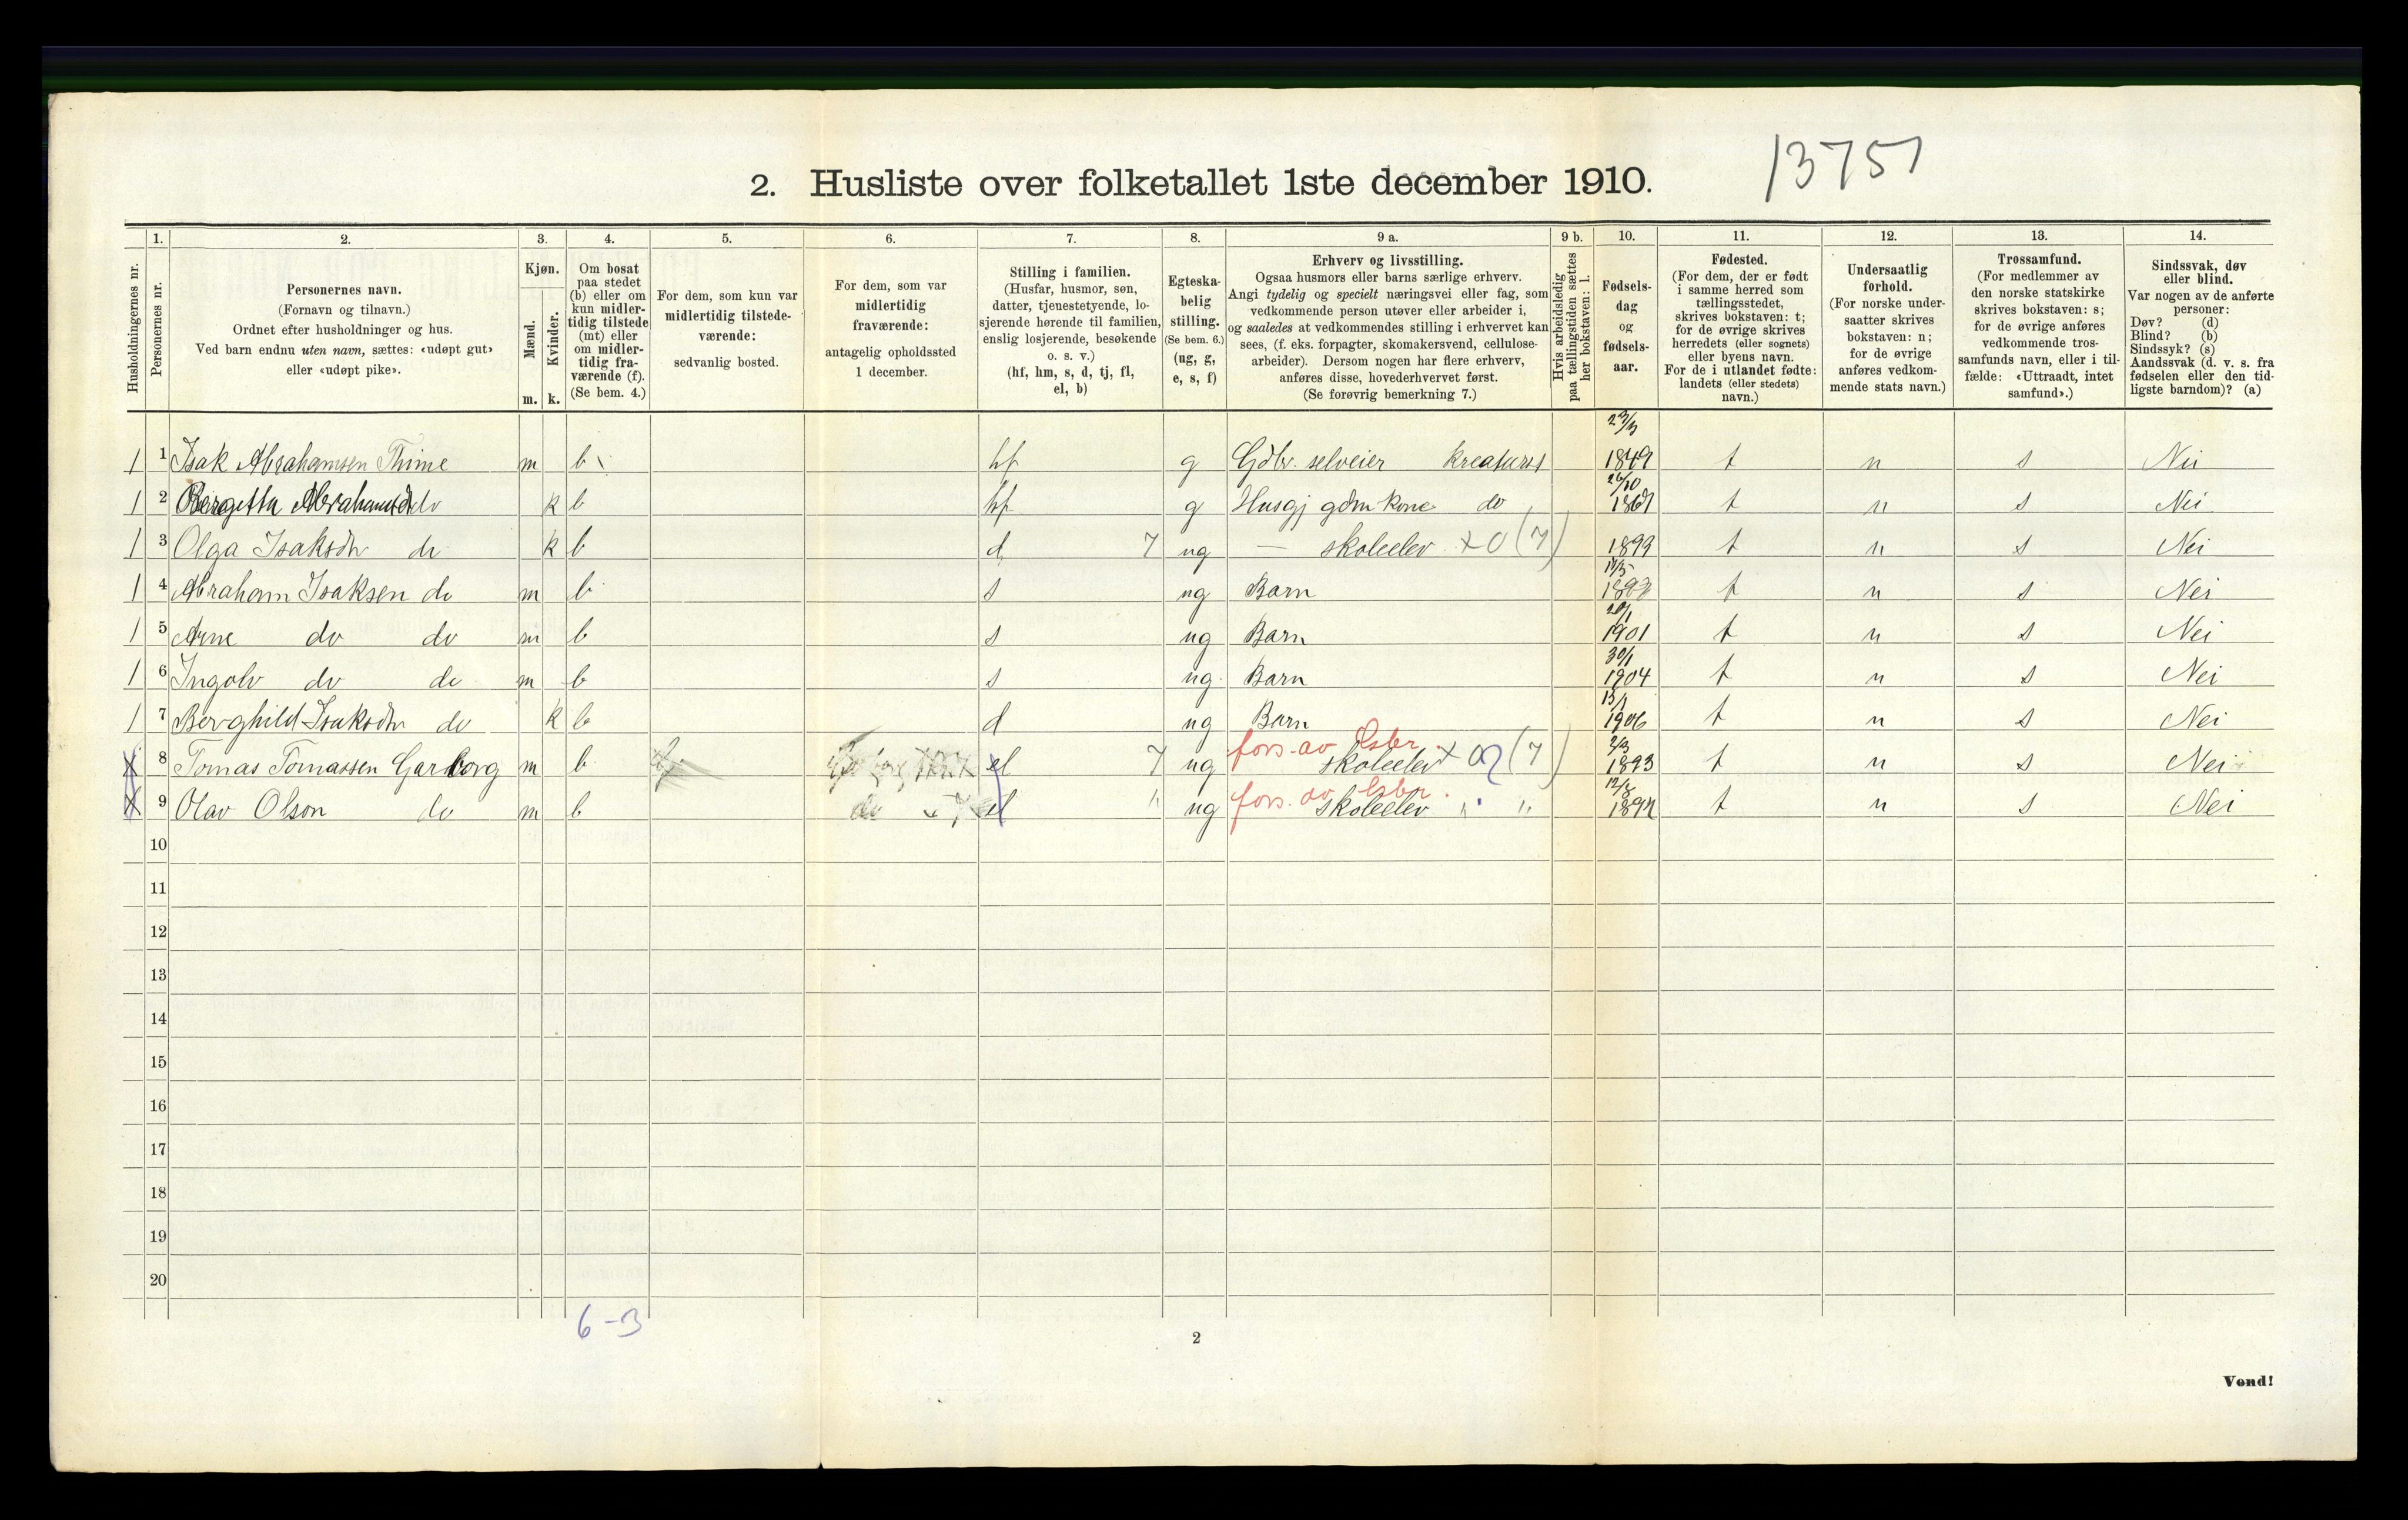 13751
2. Husliste over folketallet 1ste december 1910.
Husholdningernes nr.
1. Personernes nr.
2. Personernes navn.
(Fornavn og tilnavn.)
Ordnet efter husholdninger og hus.
Ved barn endnu uten navn, sættes: «udøpt gut»
eller «udøpt pike».
3. Kjøn.
Mænd. Kvinder.
m. k.
4. Om bosat
paa stedet
(b) eller om
kun midler-
tidig tilstede
(mt) eller
om midler-
tidig fra-
værende (f).
(Se bem. 4.)
5. For dem, som kun var
midlertidig tilstede-
værende:
sedvanlig bosted.
6. For dem, som var
midlertidig
fraværende:
antagelig opholdssted
1 december.
7. Stilling i familien.
(Husfar, husmor, søn,
datter, tjenestetyende, lo-
sjerende hørende til familien,
enslig losjerende, besøkende
o. s. v.)
(hf, hm, s, d, tj, fl,
el, b)
8. Egteska-
belig
stilling.
(Se bem. 6.)
(ug, g,
e, s, f)
9 a. Erhverv og livsstilling.
Ogsaa husmors eller barns særlige erhverv.
Angi tydelig og specielt næringsvei eller fag, som
vedkommende person utøver eller arbeider i,
og saaledes at vedkommendes stilling i erhvervet kan
sees, (f. eks. forpagter, skomakersvend, cellulose-
arbeider). Dersom nogen har flere erhverv,
anføres disse, hovederhvervet først.
(Se forøvrig bemerkning 7.)
9 b. Hvis arbeidsledig
paa tællingstiden sættes
her bokstaven: l.
10. Fødsels-
dag
og
fødsels-
aar.
11. Fødested.
(For dem, der er født
i samme herred som
tællingsstedet,
skrives bokstaven: t;
for de øvrige skrives
herredets (eller sognets)
eller byens navn.
For de i utlandet fødte:
landets (eller stedets)
navn.)
12. Undersaatlig
forhold.
(For norske under-
saatter skrives
bokstaven: n;
for de øvrige
anføres vedkom-
mende stats navn.)
13. Trossamfund.
(For medlemmer av
den norske statskirke
skrives bokstaven: s;
for de øvrige anføres
vedkommende tros-
samfunds navn, eller i til-
fælde: «Uttraadt, intet
samfund».)
14. Sindssvak, døv
eller blind.
Var nogen av de anførte
personer:
Døv? (d)
Blind? (b)
Sindssyk? (s)
Aandssvak (d. v. s. fra
fødselen eller den tid-
ligste barndom)? (a)
1 1 Isak Abrahamsen Thime m b hf g Gdbr. selveier kreaturst 1849 t n s Nei
1 2 Abrahamsd do k b hf g Husgj gdm kone do 26/10 t n s Nei
1 3 Olga Isaksdtr do k b d 7 ug — skoleelev x0 (7) 1899 t n s Nei
1 4 Abraham Isaksen do m b s ug Barn t n s Nei
1 5 Arne do do m b s ug Barn 1901 t n s Nei
1 6 Ingolv do do m b s ug Barn 30/1 1904 t n s Nei
1 7 Berghild Isaksdtr do k b d ug Barn 1906 t n s Nei
x 8 Tomas Tomassen Garborg m b el 7 ug fors. av skoleelev x (7) 2/3 1893 t n s Nei
x 9 Olav Olson do m b do el " ug fors. av skoleelev " " t n s Nei
10
11
12
13
14
15
16
17
18
19
20
6-3
2
Vend!